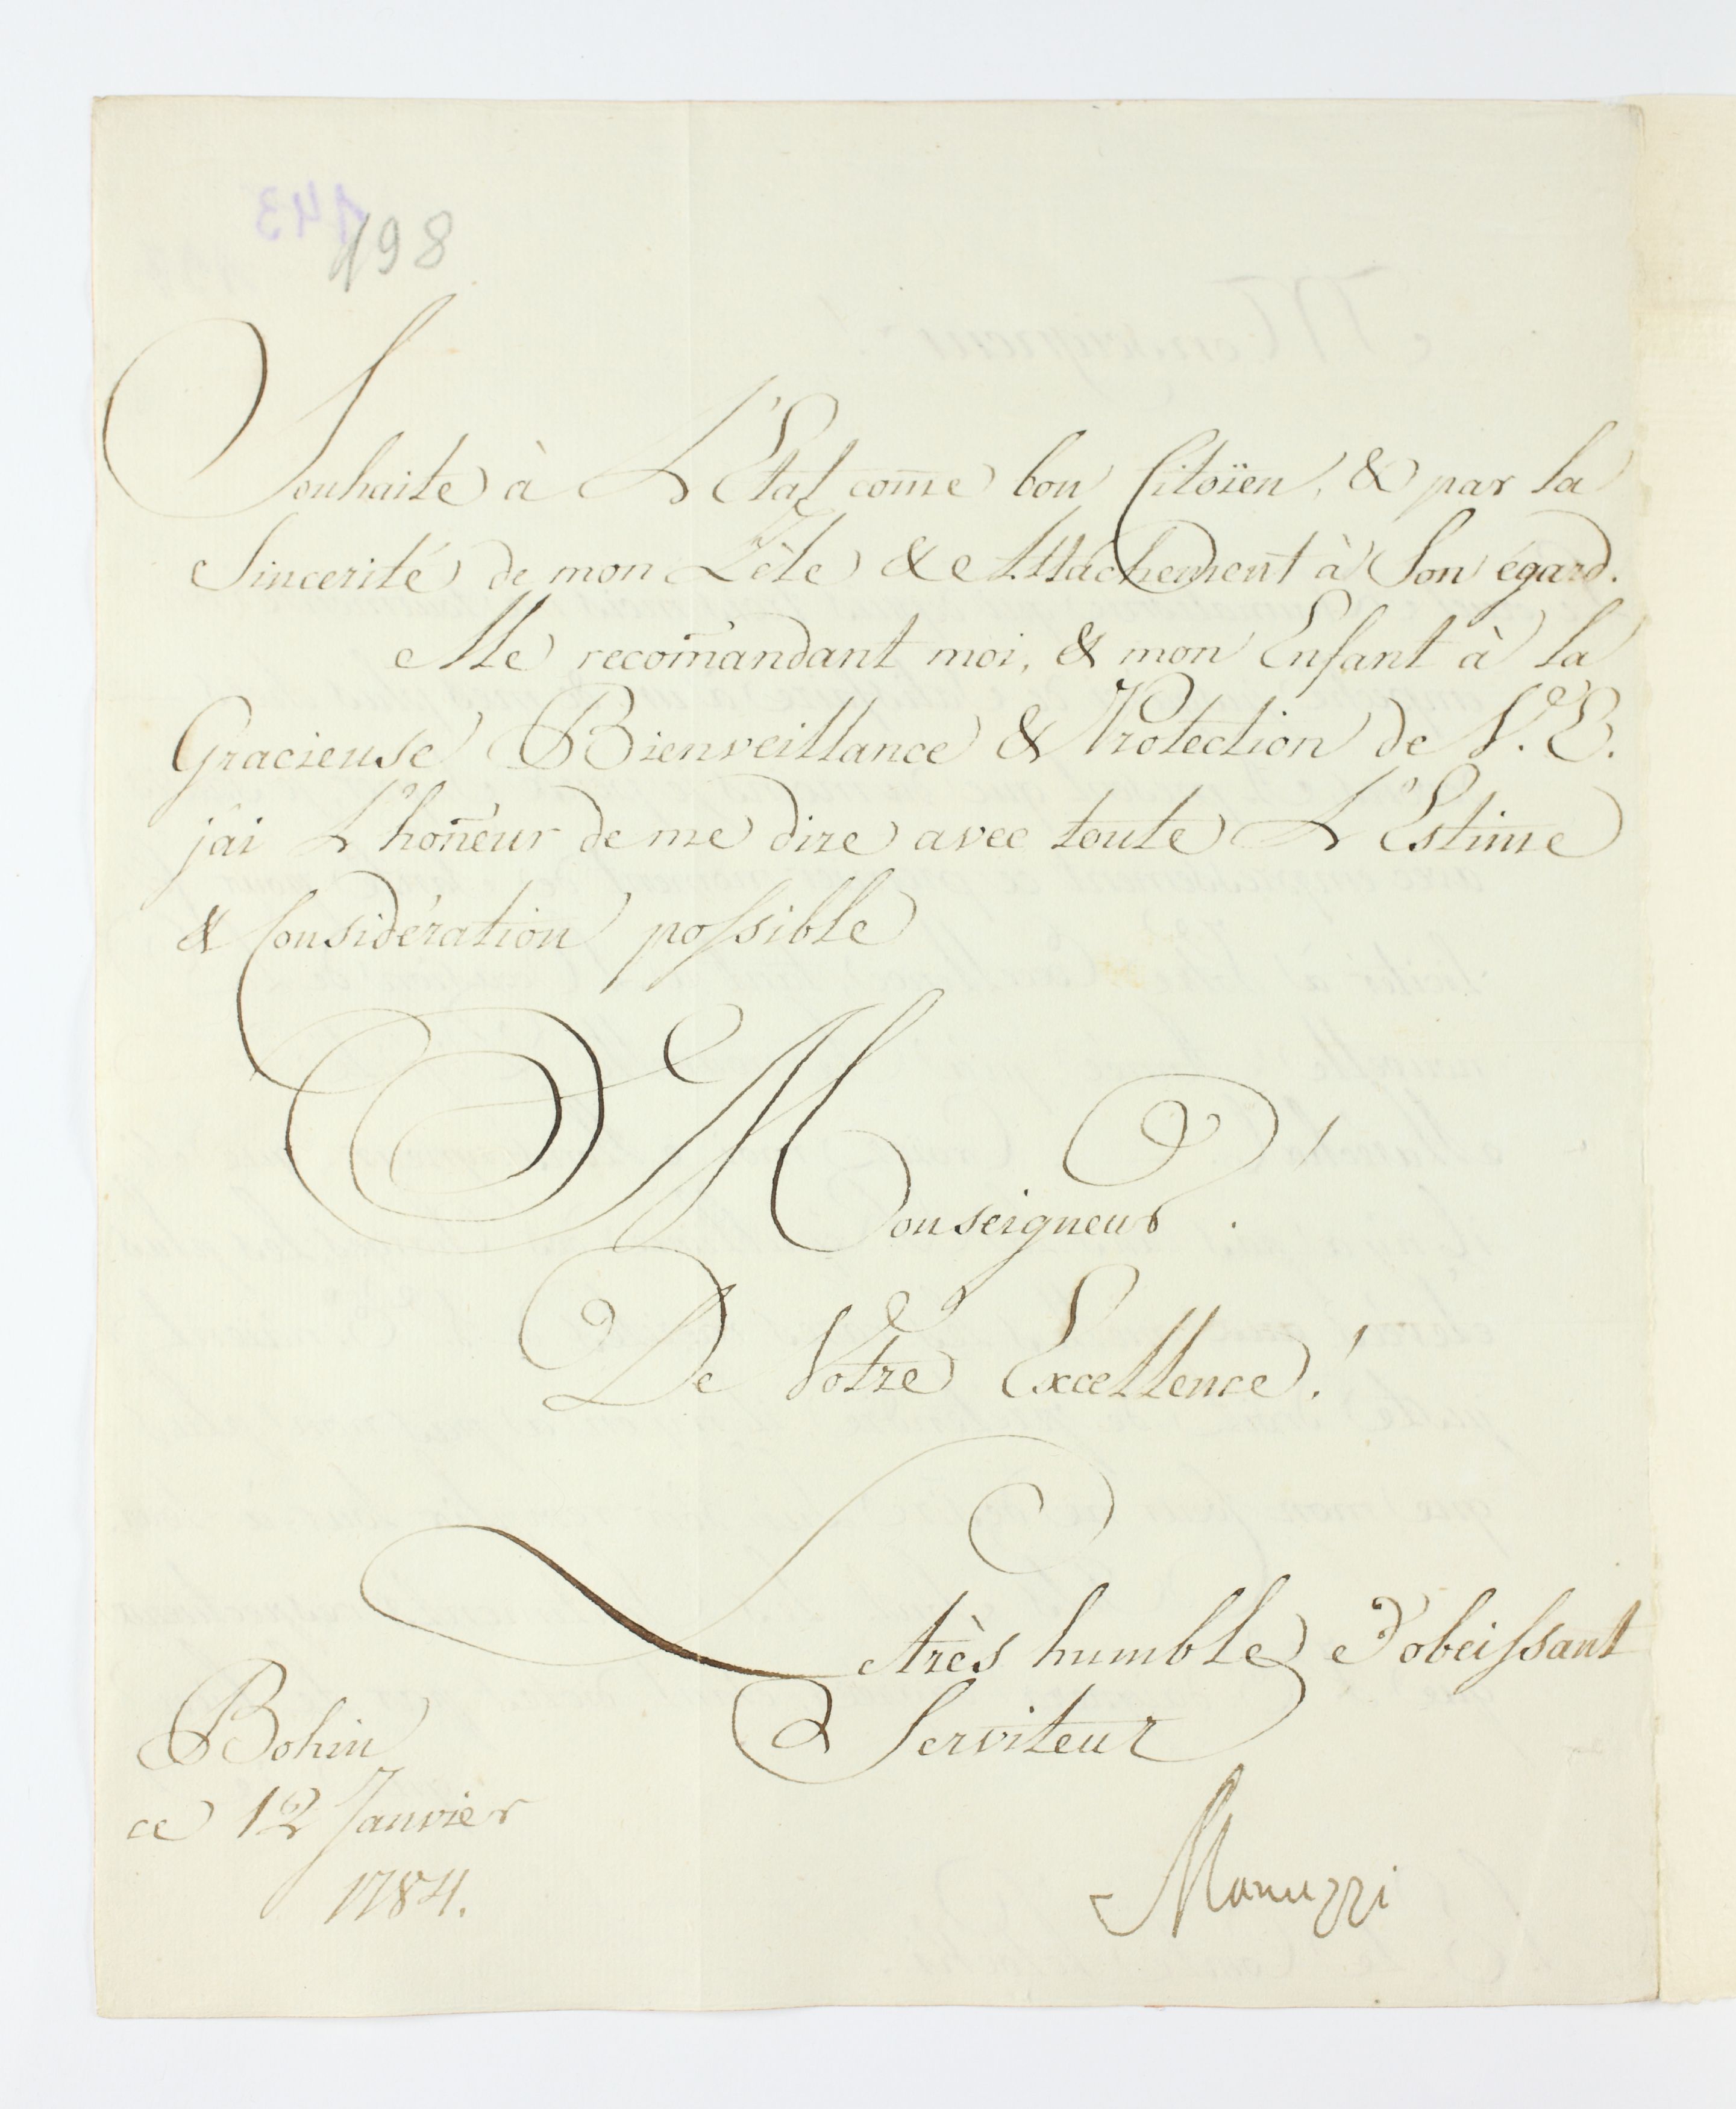 143
198
Souhaite à L'Etat come bon Citoïen, & par la
Sincerité de mon Zèle & Attachement à Son égard.
Me recom̄andant moi, & mon Enfant à la
Gracieuse Bienveillance & Protection de V. E.
j'ai L'hon̄eur de me dire avec toute L'Estime
& Considération possible
Monseigneur!
De Votre Excellence!
très humble & obeissant
Serviteur
Manuzzi
Bohin
ce 12 Janvier
1784.